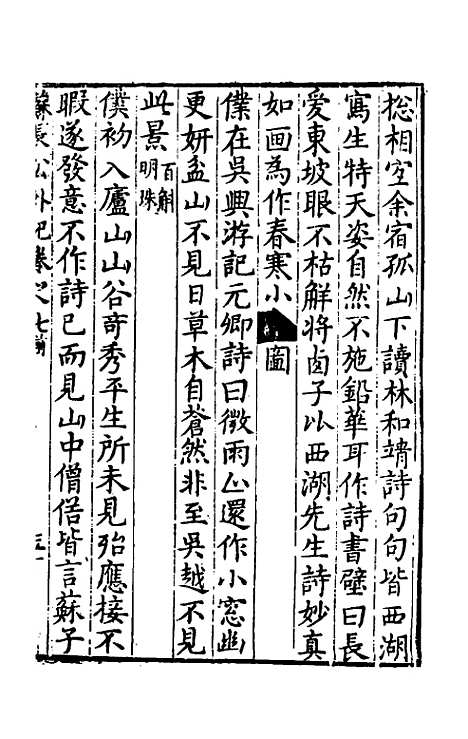 捴相空余宿孤山下讀林和靖詩句句皆西湖
寫生特天姿自然不施鉛華耳作詩書壁曰長
愛東坡眼不枯解将西子比西湖先生詩妙真
如画為作春寒小圖
僕在吳興游記元卿詩曰微雨止還作小窓幽
更妍盆山不見日草木自蒼然非至吳越不見
此景
百斛
明珠
僕初入廬山山谷奇秀平生所未見殆應接不
暇遂發意不作詩已而見山中僧俗皆言蘇子
蘇長公外紀卷之七